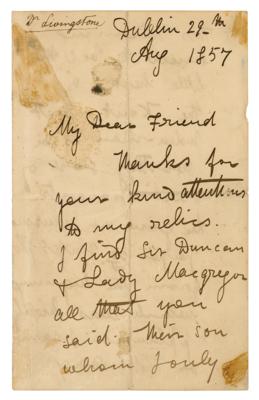 Dr Livingstone
Dublin 29th
Aug 1857
My Dear Friend
Thanks for
your kind attentions
to my relics.
I find Sir Duncan
& Lady Macgregor
all that you
said. Their son
whom I only